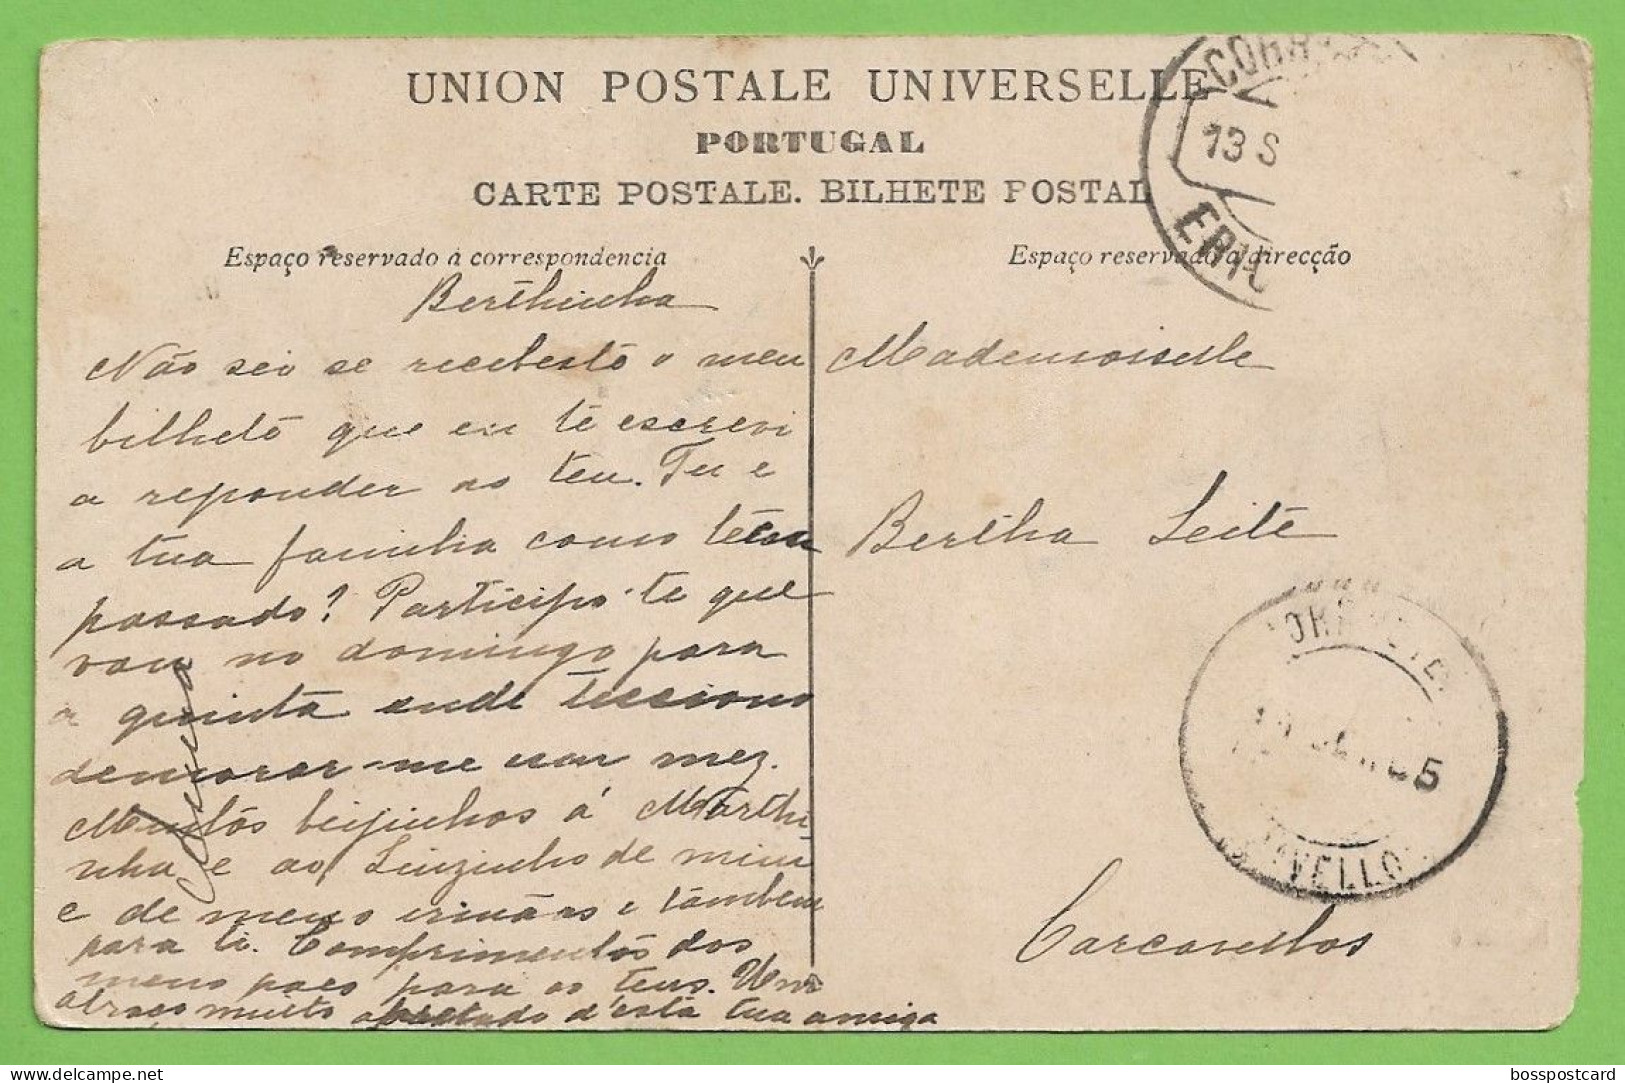 UNION POSTALE UNIVERSELLE
PORTUGAL
CARTE POSTALE. BILHETE POSTAL
Espaço reservado á correspondencia
Berthinha
Não sei se recebestes o meu
bilhete que eu te escrevi
a reponder ao teu. Tu e
a tua familia como teem
passado? Participo-te que
vou no domingo para
a quinta onde tecciono
demorar-me um mez.
Muitos beijinhos á Marthi
nha e ao Luizinho de mim
e de meus irmãos e tambem
para ti. Comprimentos dos
meus paes para os teus. Um
abraço muito apertado d'esta tua amiga
Espaço reservado á direcção
Mademoiselle
Bertha Leite
Carcavellos
13 S
5
VELLO
bosspostcard